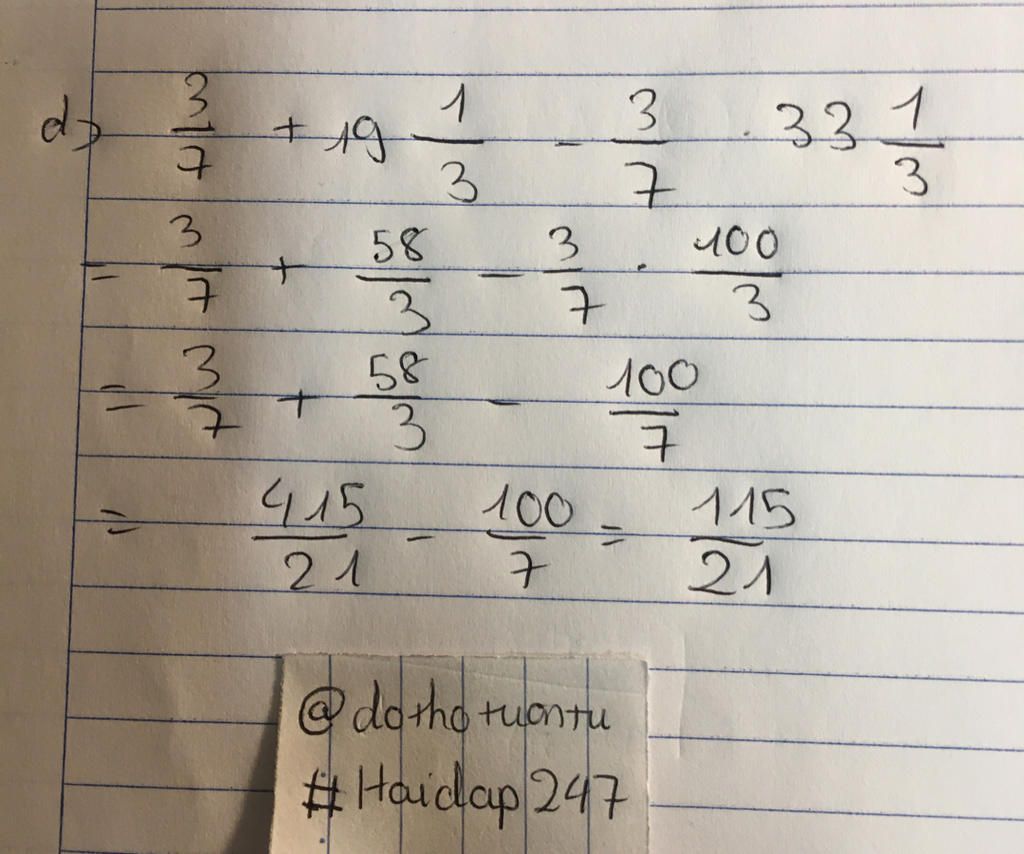 d) 3/7 + 19 1/3 - 3/7 . 33 1/3
= 3/7 + 58/3 - 3/7 . 100/3
= 3/7 + 58/3 - 100/7
= 415/21 - 100/7 = 115/21
@dothotuontu
#Hoidap247